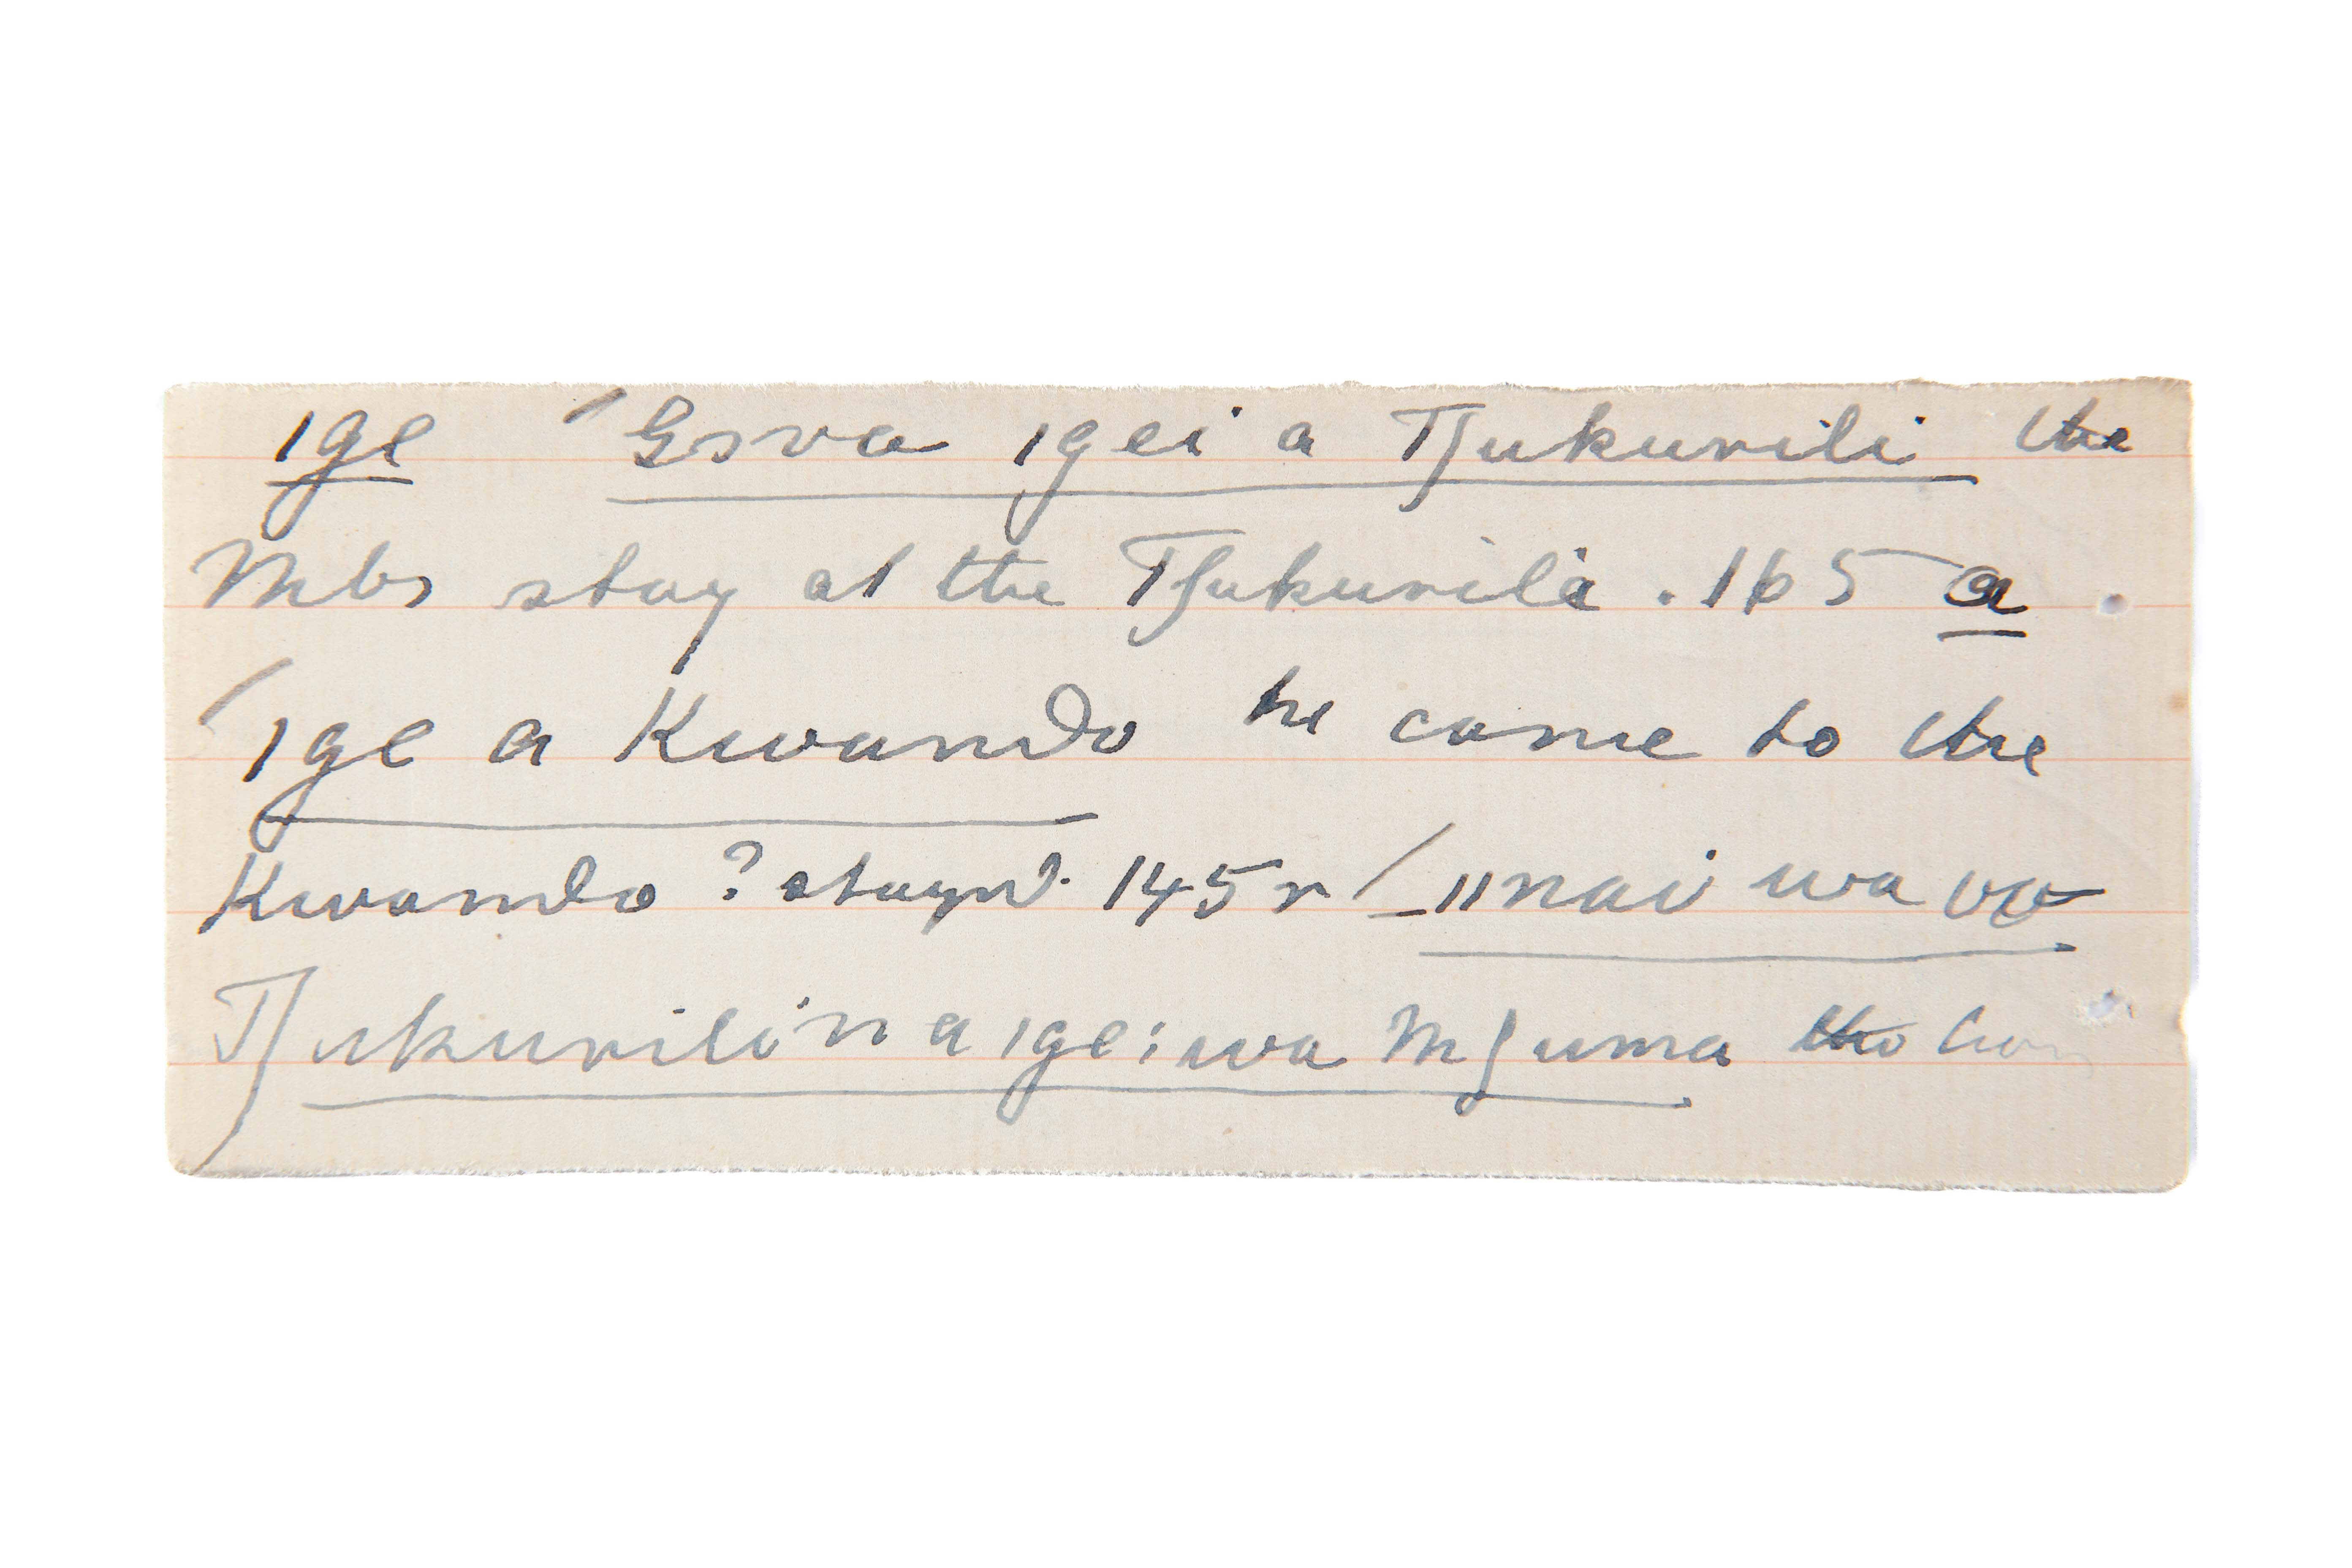 ıge Gsva ıgei a Tʃukurili the
Mbs stay at the Tʃukurili . 165 a
ıge a Kwando he came to the
Kwando ? stayed. 145 r / ıınai wa va
Tʃukurili n a ıgei wa Mʃuma